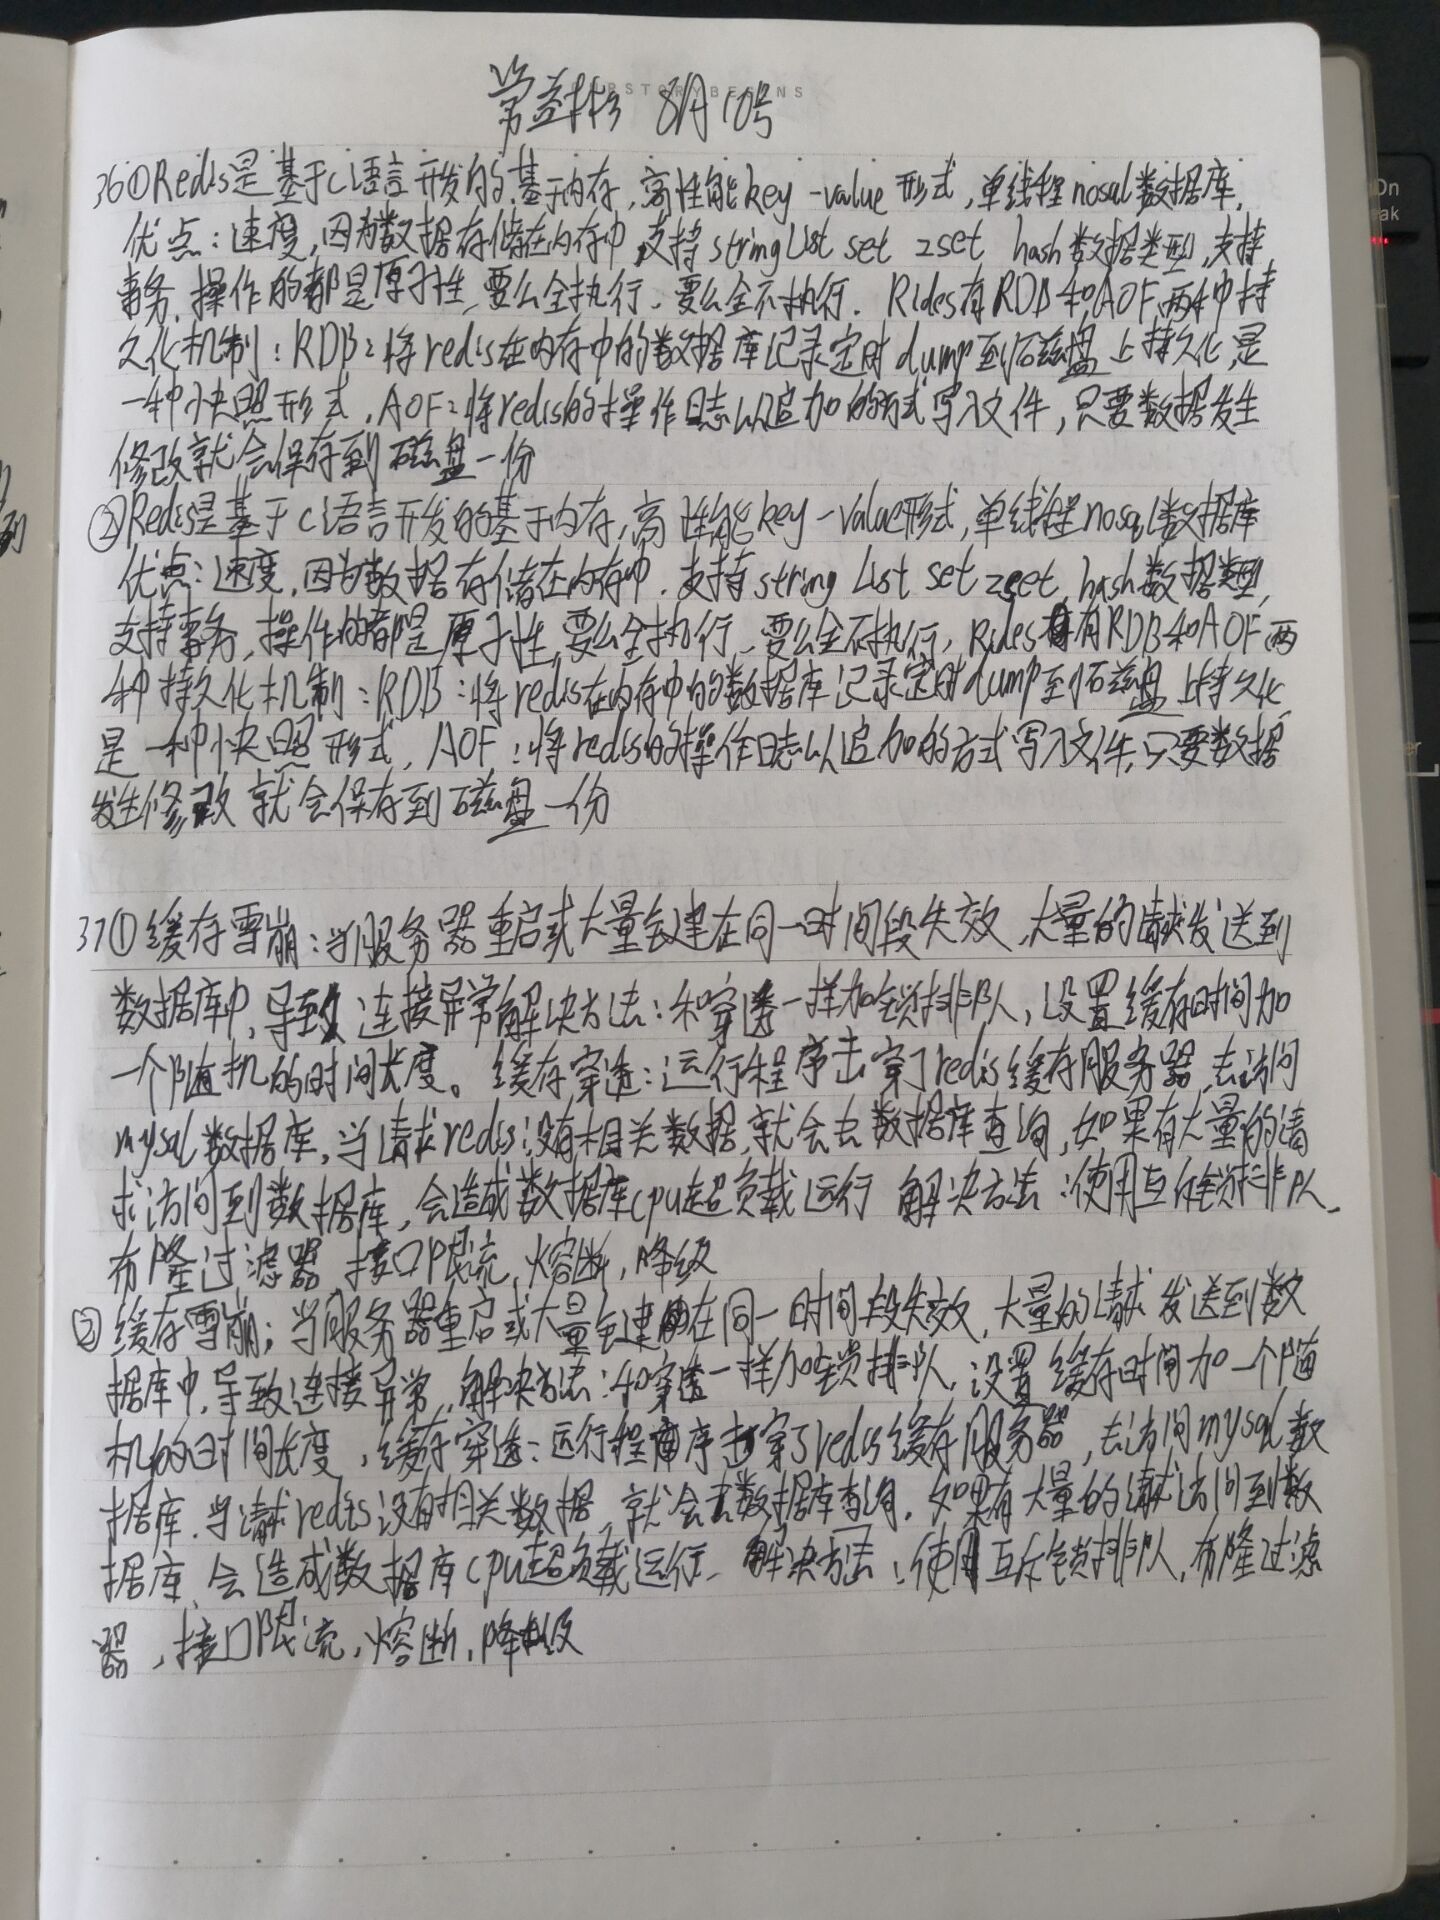 RSTORYBEGINS
8月10号
36①Redis是基于c语言开发的.基于内存,高性能key-value形式,单线程nosql数据库,
优点:速度,因为数据存储在内存中,支持string List set zset hash数据类型,支持
事务,操作的都是原子性,要么全执行、要么全不执行. Rides有RDB和AOF、两种持
久化机制:RDB:将redis在内存中的数据库记录定时dump到磁盘上持久化,是
一种快照形式,AOF:将redis的操作日志以追加的方式写入文件,只要数据发生
修改就会保存到磁盘一份
②Redis是基于c语言开发的基于内存,高性能key-value形式,单线程nosql数据库
优点:速度,因为数据存储在内存中.支持string List set zset,hash数据类型,
支持事务,操作的都是原子性,要么全执行、要么全不执行,Rides有RDB和AOF,两
种持久化机制:RDB:将redis在内存中的数据库记录定时dump到磁盘上持久化,
是一种快照形式,AOF:将redis的操作日志以追加的方式写入文件,只要数据
发生修改就会保存到磁盘一份
37①缓存雪崩:当服务器重启或大量在同一时间段失效,大量的请求发送到
数据库中,导致连接异常解决方法:和穿透一样加锁排队,设置缓存时间加
一个随机的时间长度。缓存穿透:运行程序击穿了redis缓存服务器,去访问
mysql数据库,当请求redis没有相关数据,就会去数据库查询,如果有大量的请
求访问到数据库,会造成数据库cpu超负载运行 解决方法:使用互斥锁排队、
布隆过滤器,接口限流,熔断,降级
②缓存雪崩:当服务器重启或大量在同一时间段失效,大量的请求发送到数
据库中,导致连接异常,解决方法:和穿透一样加锁排队,设置缓存时间加一个随
机的时间长度,缓存穿透:运行程序击穿了redis缓存服务器,去访问mysql数
据库.当请求redis没有相关数据,就会去数据库查询.如果有大量的请求访问到数
据库,会造成数据库cpu超负载运行、解决方法:使用互斥锁排队,布隆过滤
器,接口限流,熔断,降级